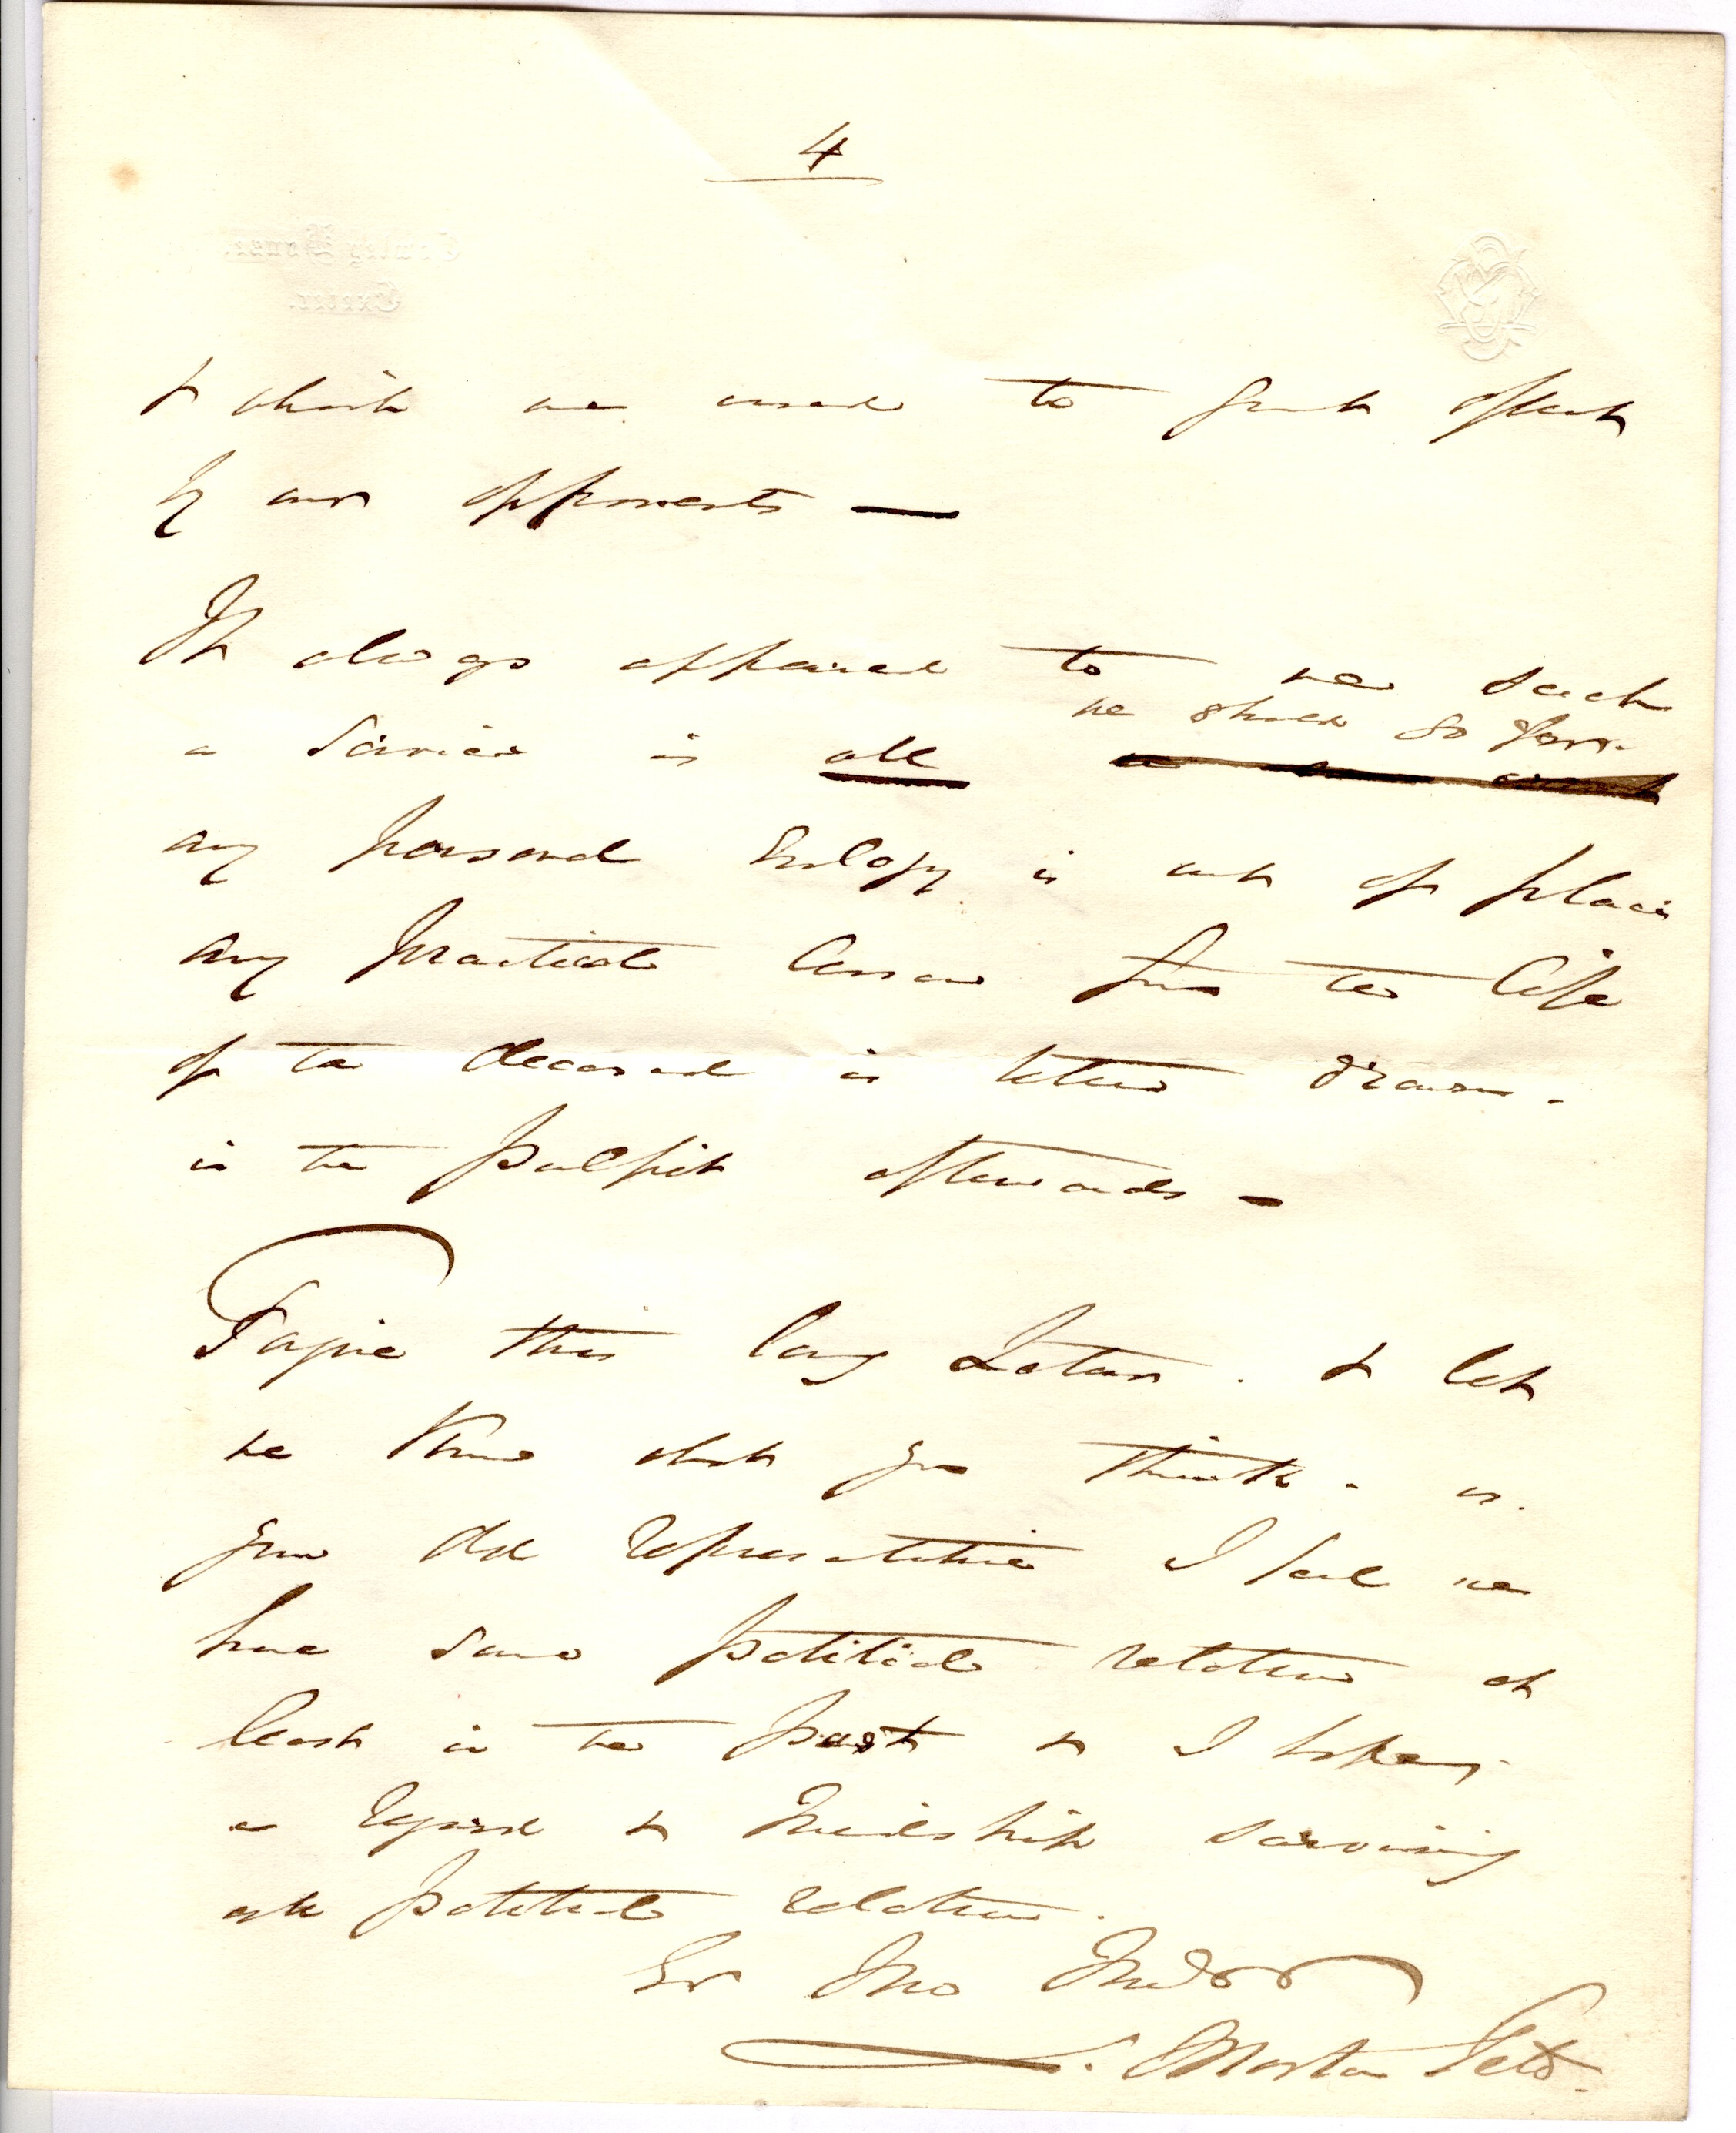 4
& which are used to great effect
by our opponents —
It always appeared to me such
we should go for.
a Service is all
any personal Eulogy is out of place
any practical lesson from the life
of the deceased is better drawn.
in the Pulpit afterwards —
Forgive this long Letter. & let
me know what you think. as.
your old representative I feel we
have some political relation at
least in the past & I hope
a regard & Friendship surviving
political relation.
Yr Friend
S. Morton Peto.